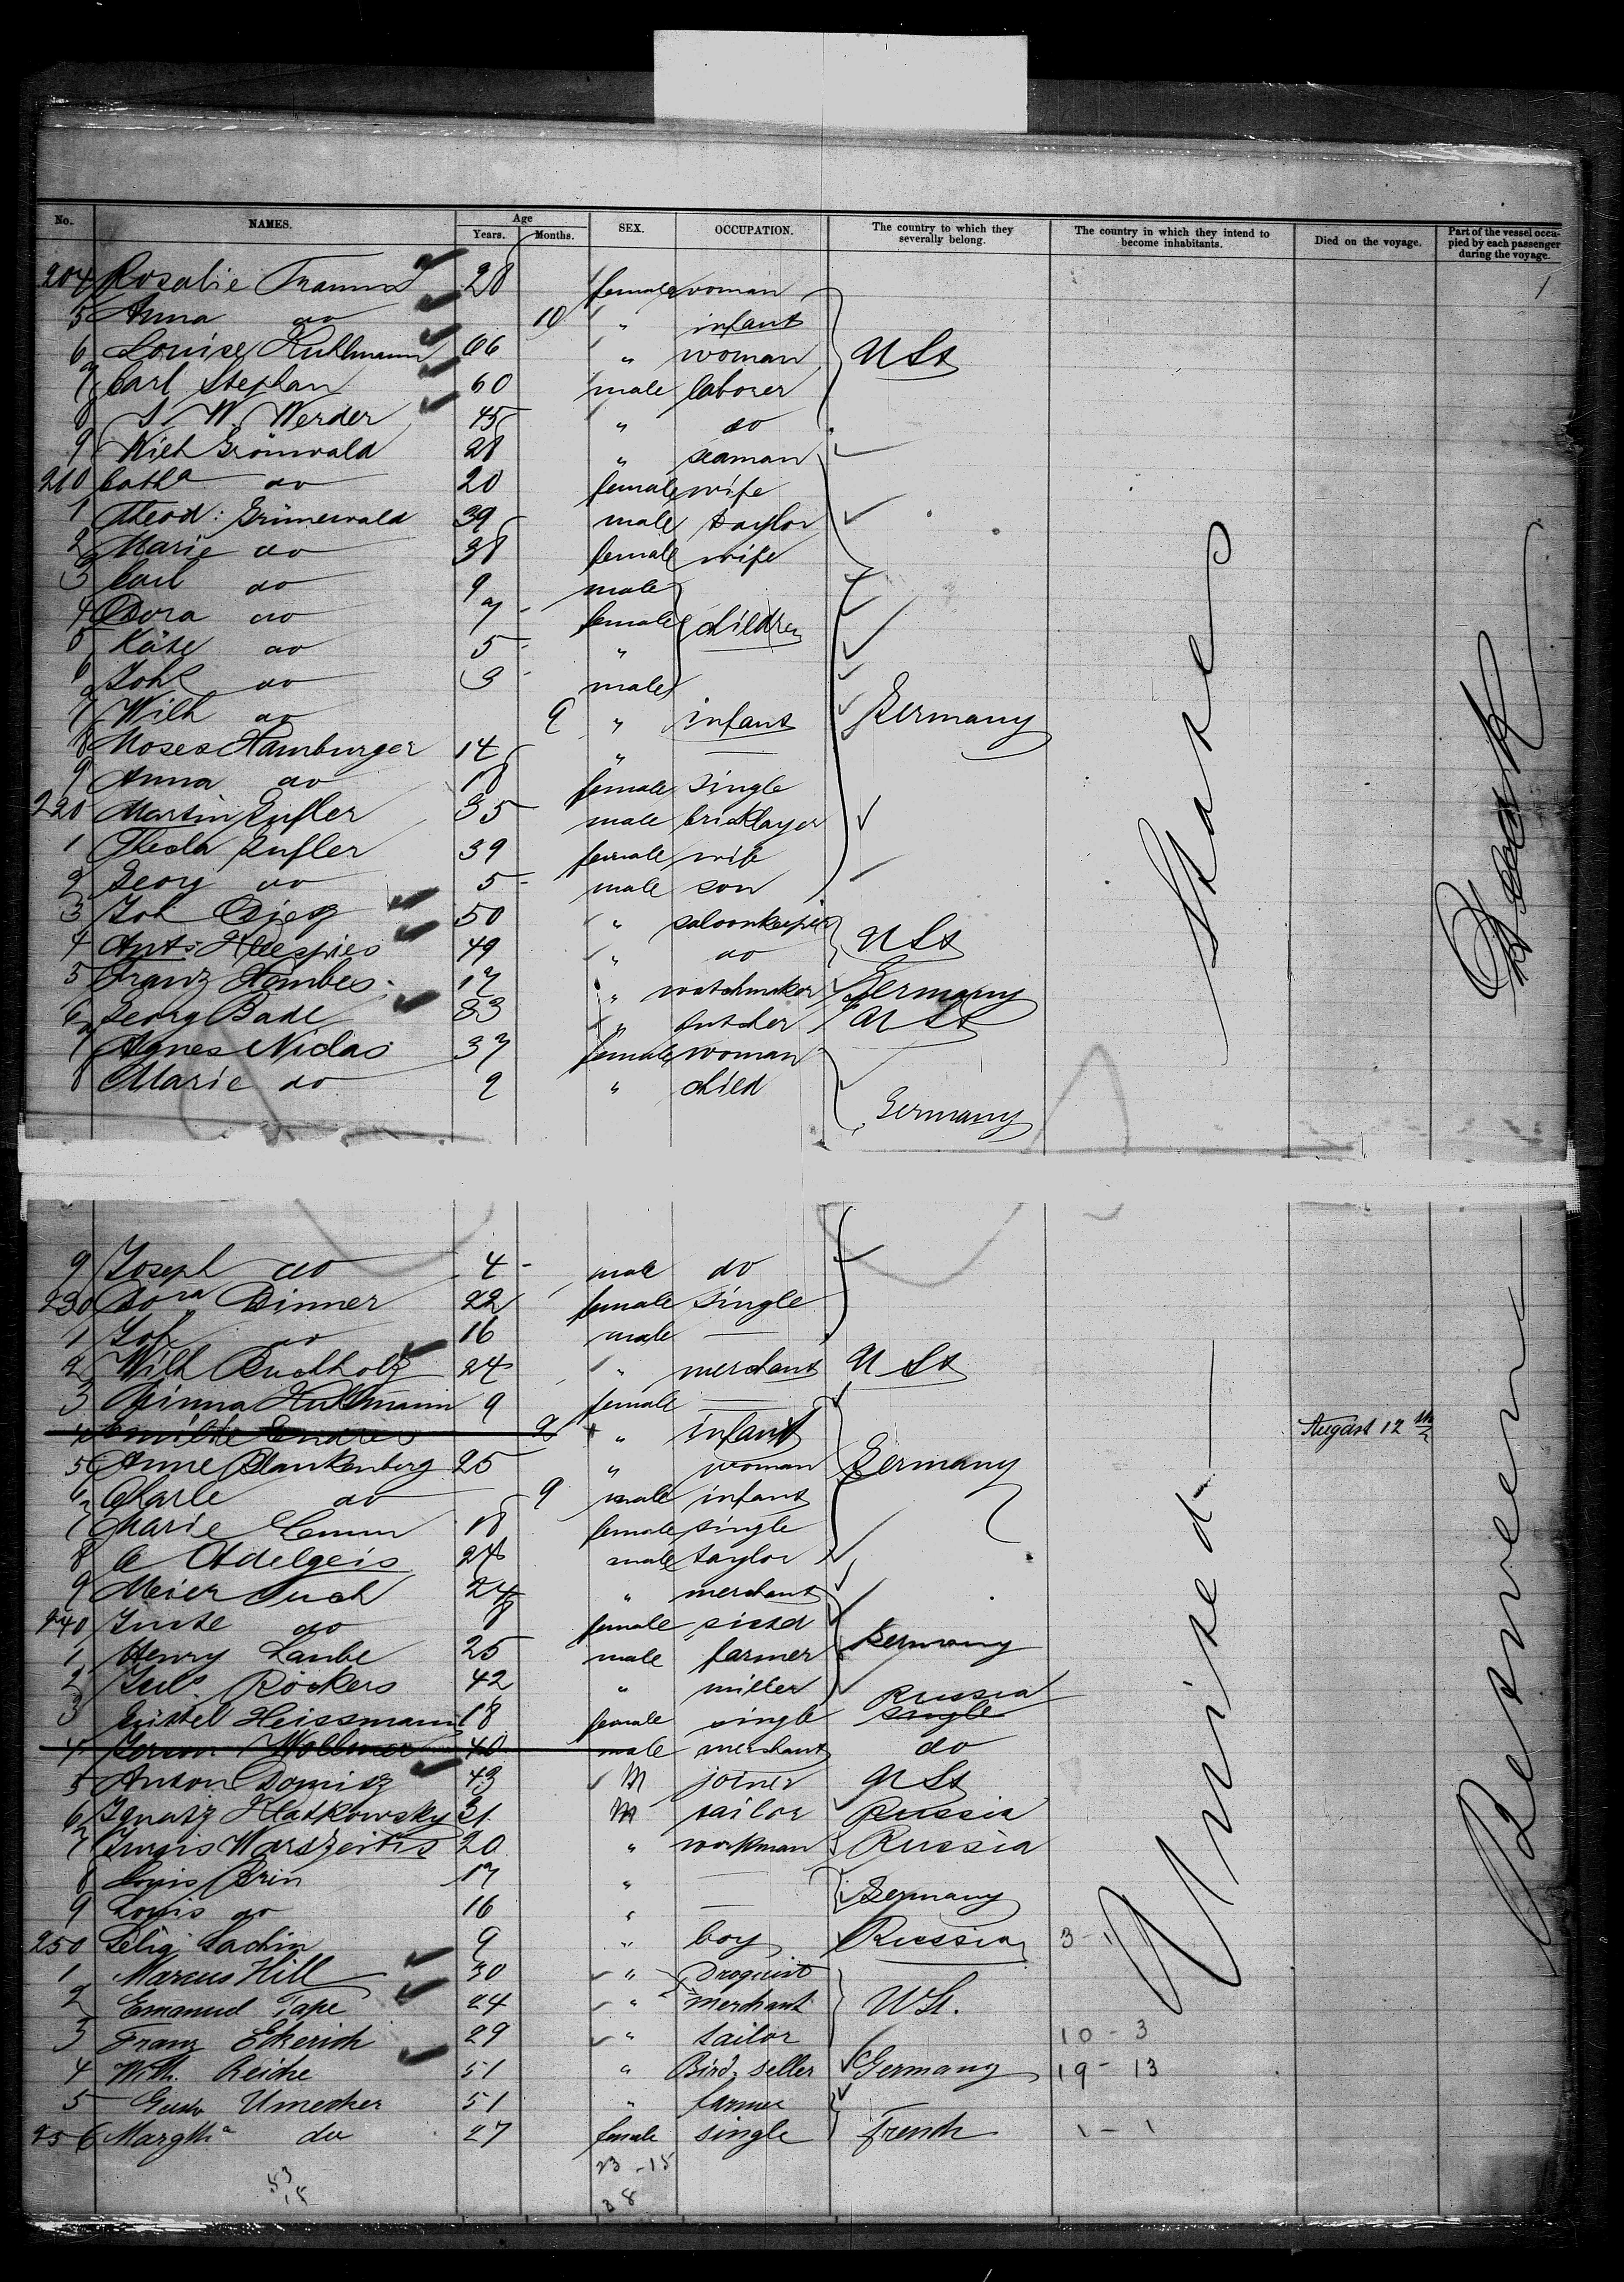 No. NAMES. Age Years. Months. SEX. OCCUPATION. The country to which they severally belong. The country in which they intend to become inhabitants. Died on the voyage. Part of the vessel occupied by each passenger during the voyage.
204 Rosalie 28 female woman 1
5 Anna do 10 " infant
6 Louise Kullmann 66 " woman U St
7 Carl Stephan 60 male laborer
8 J W Werder 45 " do
9 Wilh Grönwald 28 " seaman
210 Catha do 20 female wife
1 Theod: Grünewald 39 male taylor
2 Marie do 38 female wife
3 Carl do 9 male
4 Dora do 7 female children
5 Käte do 5 "
6 Joh do 3 male
7 Wilh do 9 " infant Germany
8 Moses Hamburger 14 " —
9 Anna do 18 female single
220 Martin Gufler 35 male bricklayer
1 Theda Gufler 39 female wife
2 Georg do 5 male son
3 Joh 50 " saloonkeeper
4 Ants 49 " do U St
5 Franz Hombes 17 " watchmaker Germany
6 Georg Bade 33 " butcher U St
7 Agnes Niclas 37 female woman
8 Marie do 9 " child Germany
9 Joseph do 4 male do
230 Dora Dinner 22 female single
1 Joh do 16 male —
2 Wilh Buchholz 24 " merchant U St
3 Minna Kullmann 9 female —
4 Emilie Endres 9 " infant August 12th
5 Anne Blankenberg 25 " woman Germany
6 Charle do 9 male infant
7 Marie 18 female single
8 C Adelgeis 24 male taylor
9 Meier Such 24 " merchant
240 Juste do 8 female
1 Henry Laube 25 male farmer Germany
2 Juls Röckers 42 " miller
3 Heissmann 18 female single single Russia
4 Wollmer 40 male merchant do
5 Anton Domisz 43 M joiner U St
6 Ignatz Klatkowsky 31 M tailor Russia
7 Jurgis Warszeitis 20 " workman Russia
8 Louis Brin 17 " —
9 Louis do 16 " — Germany
250 Selig Sachin 9 " boy Russia 3 - 1
1 Marcus Hill 30 " Droguist
2 Emanuel Tape 24 " Merchant U St.
3 Franz Ekerich 29 " tailor 10 - 3
4 Wilh. Reiche 51 " Bird, seller Germany 19 - 13
5 Gustv Umecker 51 " farmer
256 Margtha do 27 female single French 1 - 1
23 - 15
38
United States
Between Deck